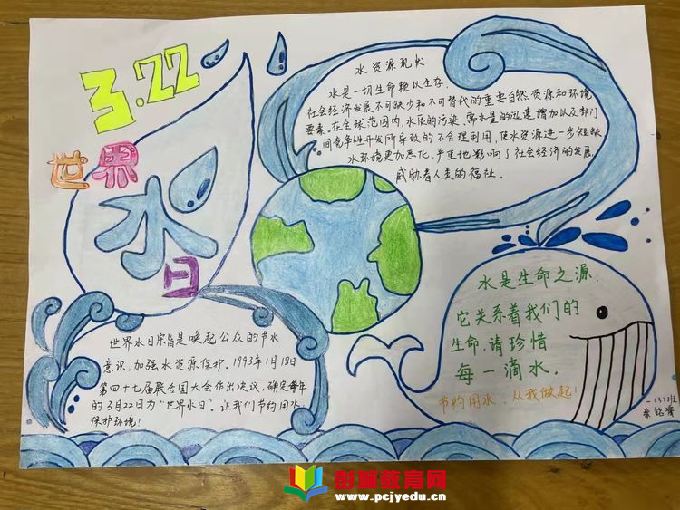 3.22
世界
水
日
水资源现状
水是一切生命赖以生存,
社会经济发展不可缺少和不可替代的重要自然资源和环境
要素。在全球范围内,水质的污染、需水量的迅速增加以及部门
间竞争性开发所导致的不合理利用,使水资源进一步短缺,
水环境更加恶化,严重地影响了社会经济的发展,
威胁着人类的福祉。
世界水日宗旨是唤起公众的节水
意识,加强水资源保护。1993年1月18日
第四十七届联合国大会作出决议,确定每年
的3月22日为“世界水日”。让我们节约用水
保护环境!
水是生命之源
它关系着我们的
生命,请珍惜
每一滴水。
节约用水,从我做起!
彭城教育网
www.pcjyedu.cn